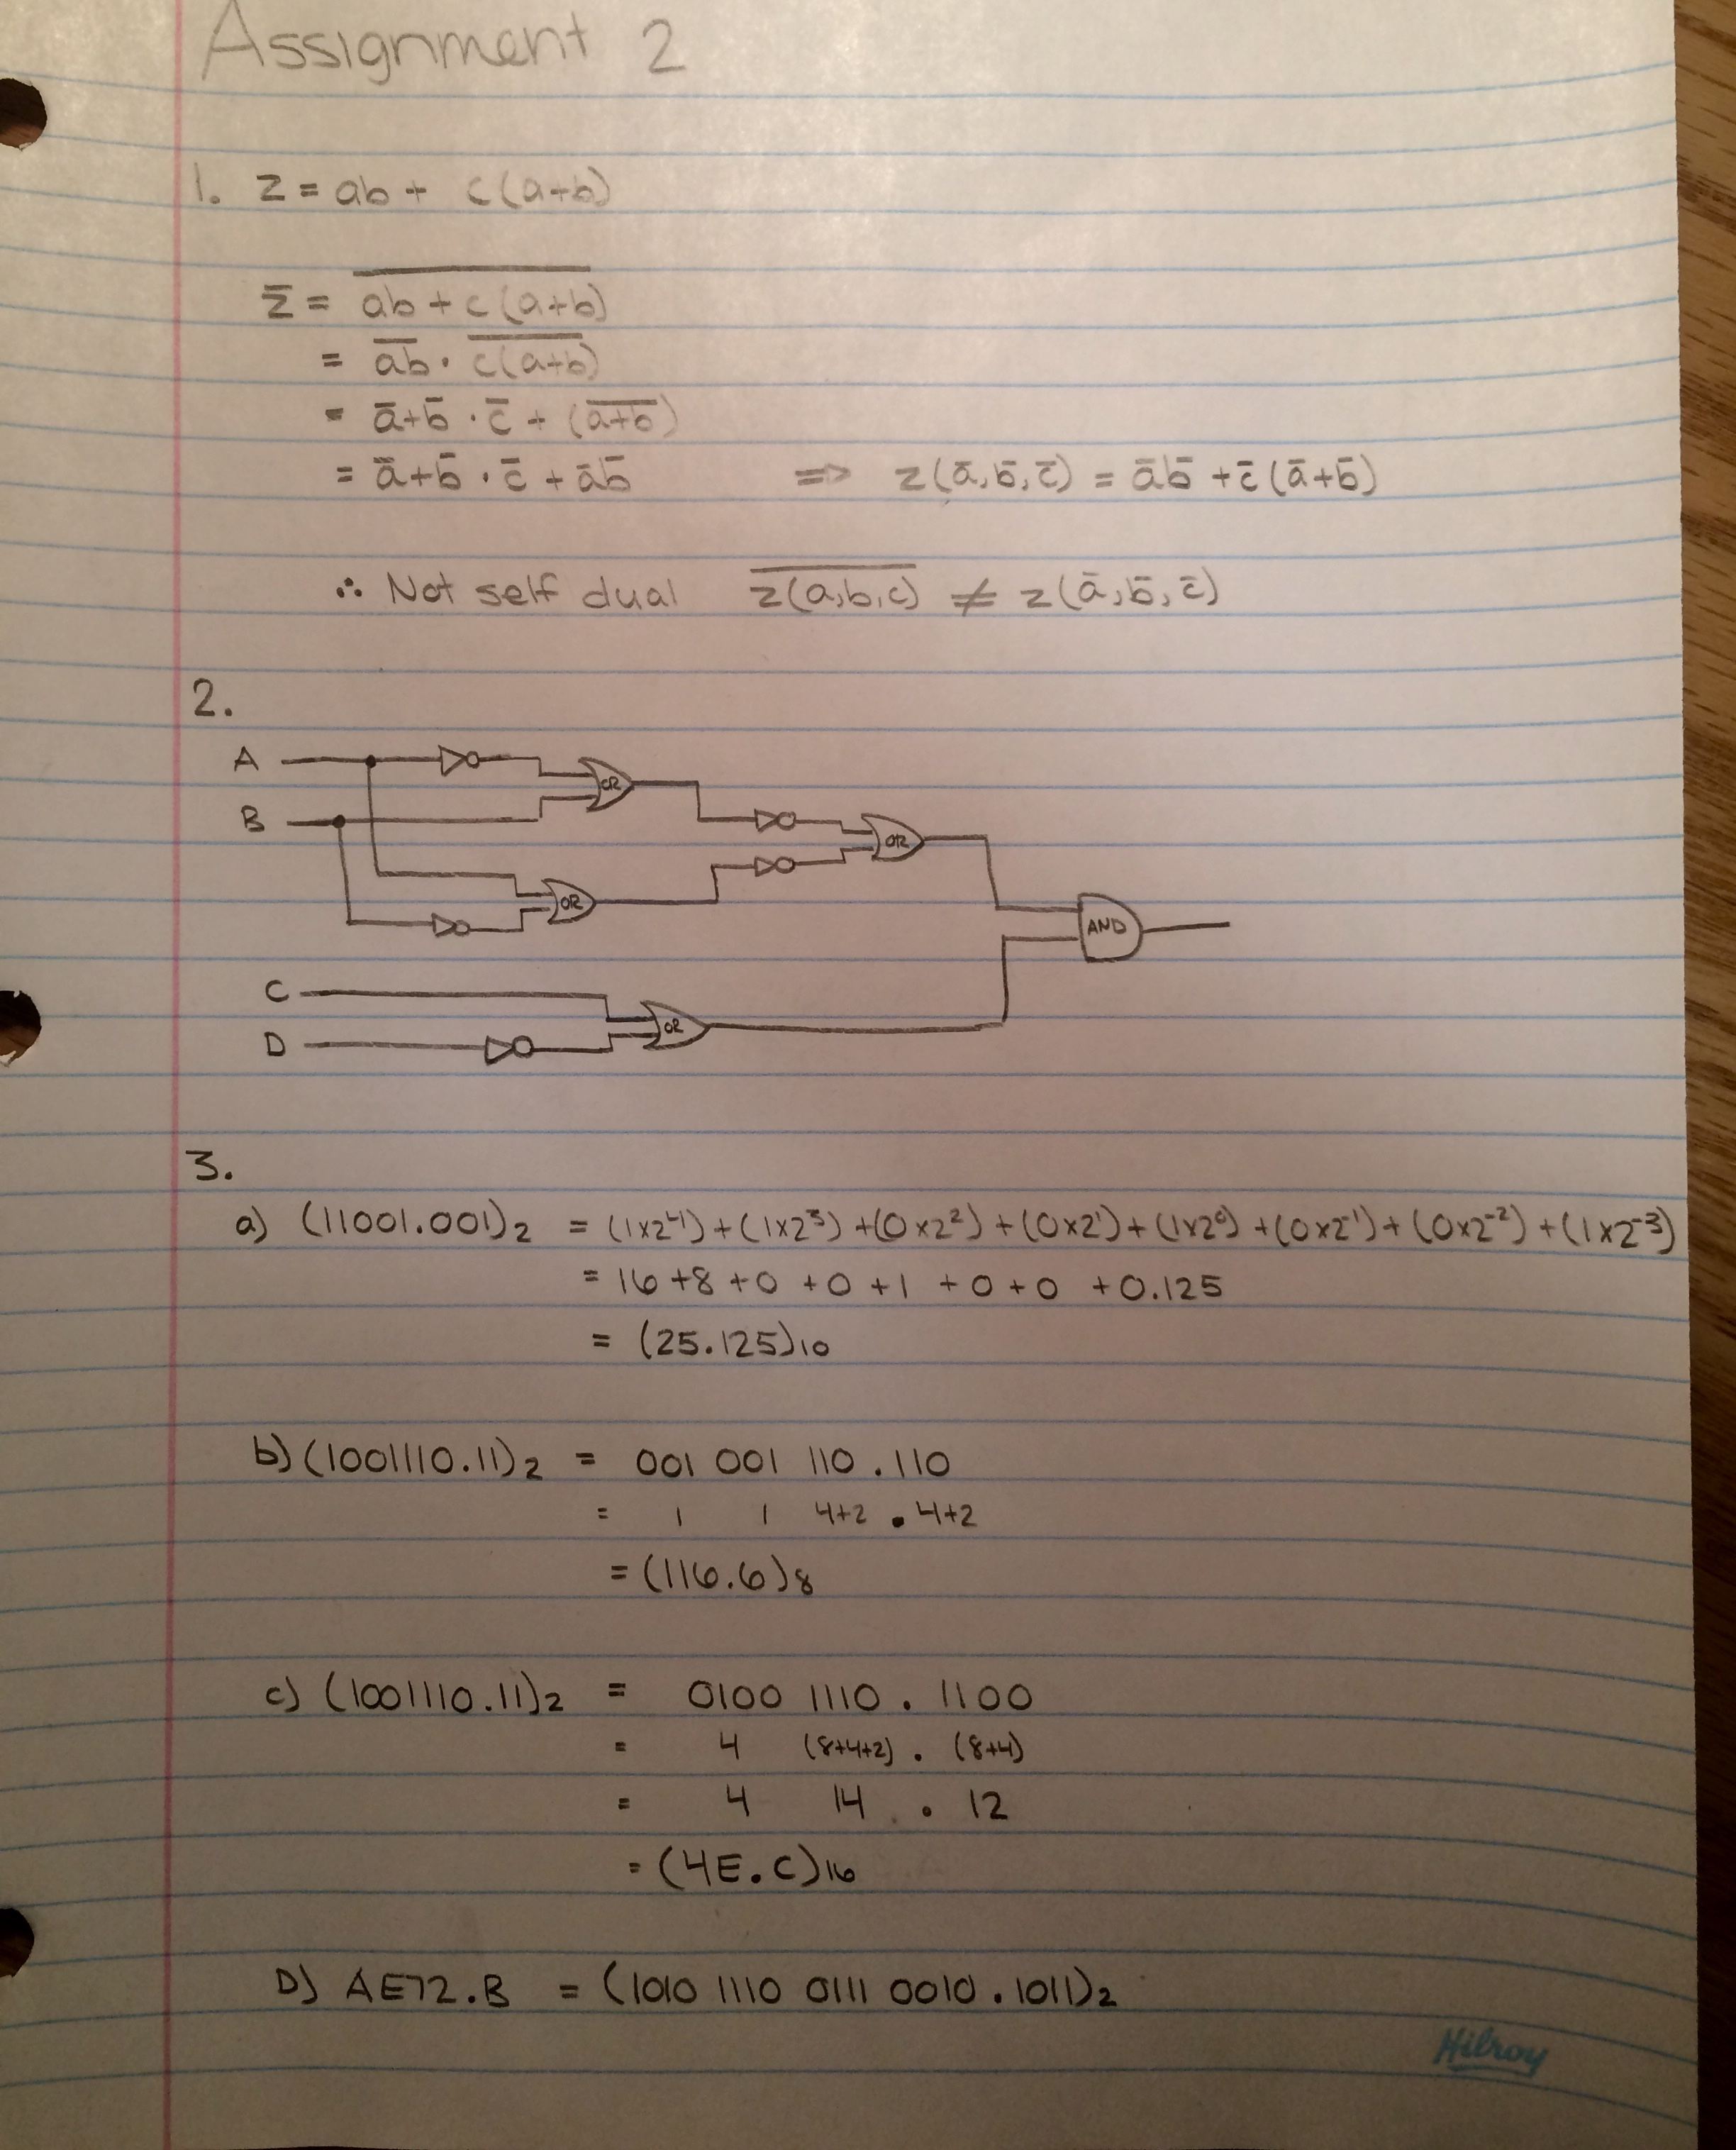 Assignment 2
1. z = ab + c(a+b)
z̅ = \overline{ab + c(a+b)}
= \overline{ab} · \overline{c(a+b)}
= a̅+b̅ · c̅ + (\overline{a+b})
= a̅+b̅ · c̅ + a̅b̅ ⇒ z(a̅,b̅,c̅) = a̅b̅ + c̅(a̅+b̅)
∴ Not self dual \overline{z(a,b,c)} ≠ z(a̅,b̅,c̅)
2.
A
OR
B
OR
OR
AND
C
OR
D
3.
a) (11001.001)₂ = (1x2⁴)+(1x2³)+(0x2²)+(0x2¹)+(1x2⁰)+(0x2⁻¹)+(0x2⁻²)+(1x2⁻³)
= 16+8+0+0+1+0+0+0.125
= (25.125)₁₀
b) (1001110.11)₂ = 001 001 110 . 110
= 1 1 4+2 . 4+2
= (116.6)₈
c) (1001110.11)₂ = 0100 1110 . 1100
= 4 (8+4+2) . (8+4)
= 4 14 . 12
= (4E.C)₁₆
D) AE72.B = (1010 1110 0111 0010 . 1011)₂
Hilroy